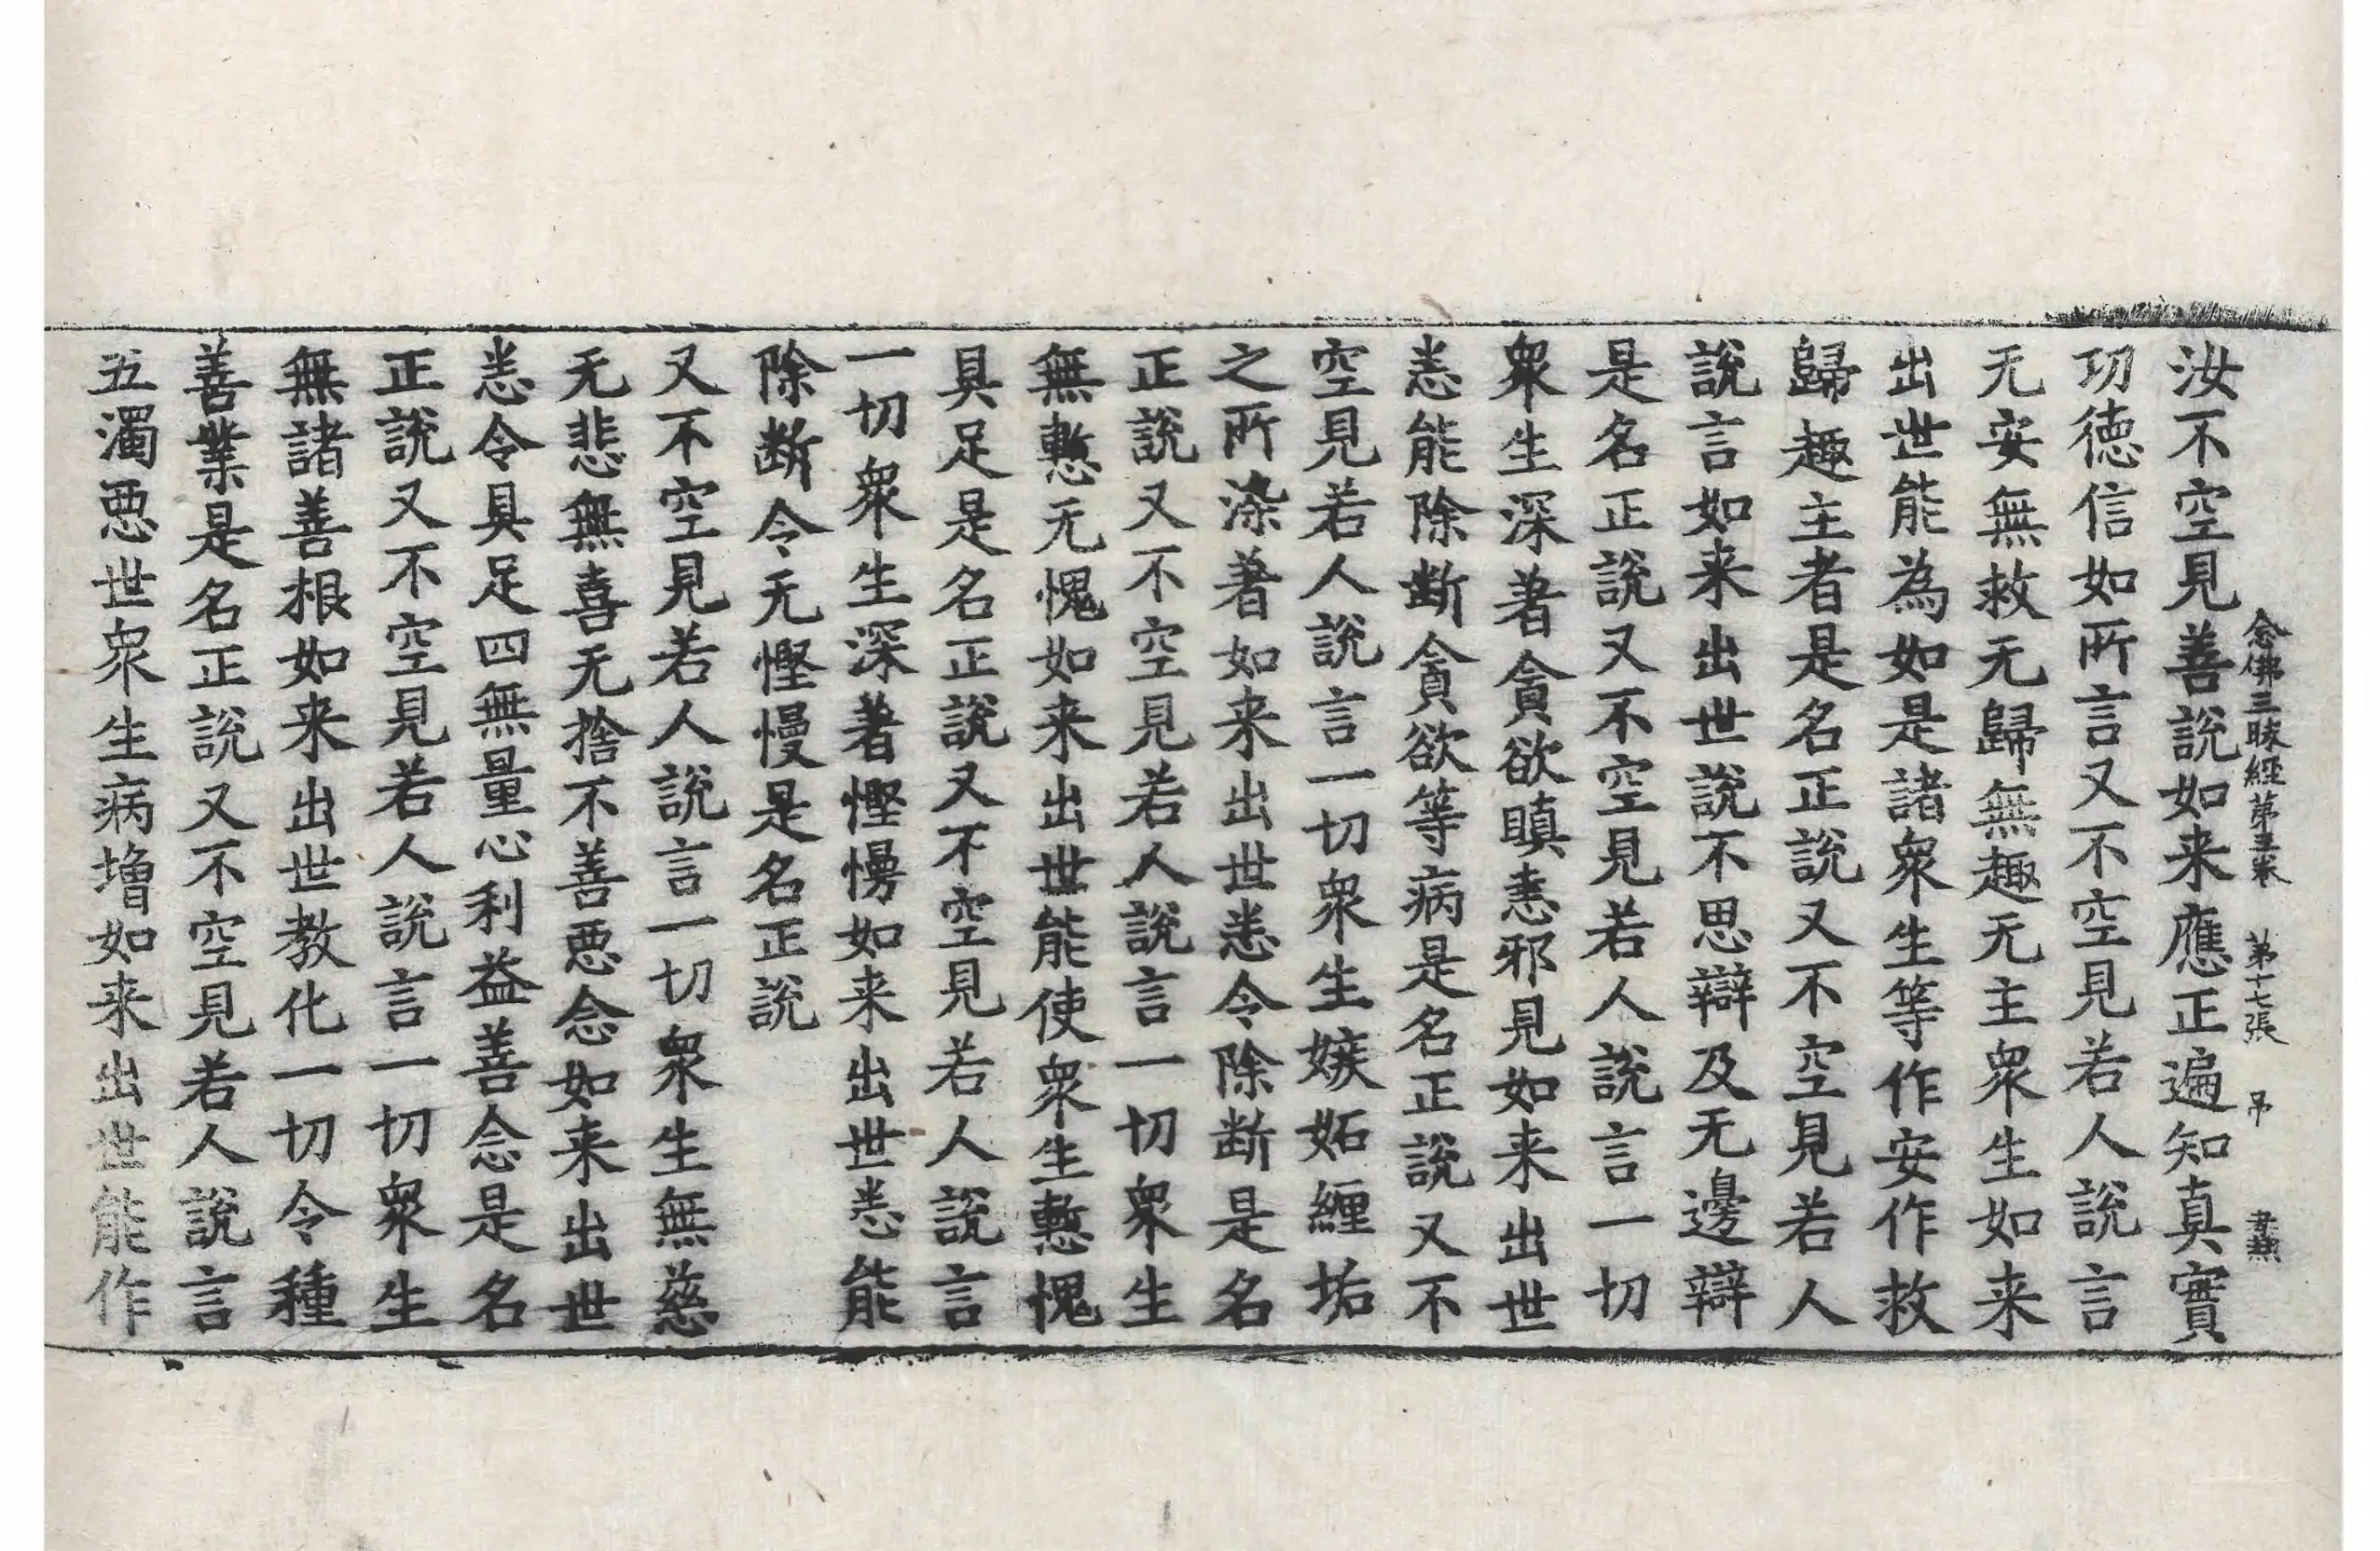 念佛三昧經第三卷 第十七張 吊
汝不空見善說如来應正遍知真實
功德信如所言又不空見若人說言
无安無救无歸無趣无主衆生如来
出世能為如是諸衆生等作安作救
歸趣主者是名正說又不空見若人
說言如来出世說不思辯及无邊辯
是名正說又不空見若人說言一切
衆生深著貪欲瞋恚邪見如来出世
悉能除断貪欲等病是名正說又不
空見若人說言一切衆生嫉妬纏垢
之所染著如来出世悉令除断是名
正說又不空見若人說言一切衆生
無慙无愧如来出世能使衆生慙愧
具足是名正說又不空見若人說言
一切衆生深著慳慢如来出世悉能
除断令无慳慢是名正說
又不空見若人說言一切衆生無慈
无悲無喜无捨不善惡念如来出世
悉令具足四無量心利益善念是名
正說又不空見若人說言一切衆生
無諸善根如来出世教化一切令種
善業是名正說又不空見若人說言
五濁惡世衆生病增如来出世能作